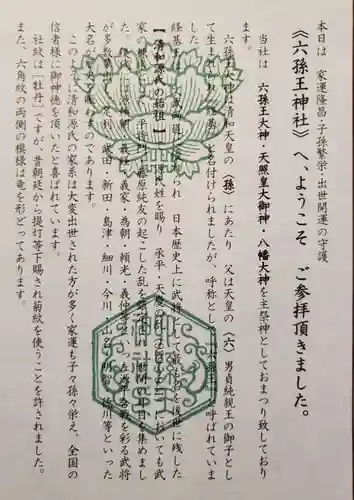 本日は 家運隆昌・子孫繁栄・出世開運の守護
《六孫王神社》へ、ようこそ ご参拝頂きました。
当社は 六孫王大神・天照皇大御神・八幡大神を主祭神としておまつり致しており
ます。
六孫王大神は清和天皇の（孫）にあたり 父は天皇の（六）男貞純親王の御子とし
て生まれ 名付けられましたが、呼称として 呼ばれていま
経基王は 文武両道 られ 日本歴史上に武将として最も名を後世に残した
【清和源氏の始祖】 源氏姓を賜り 承平・天慶の においても武
家 平将門 藤原純友の起こした乱を 日を集めまし
た。 頼朝 義経 義家・為朝・頼光・義仲 を彩る武将
が多数 足利 武田・新田・島津・細川・今川 山名 明智 徳川等といった
大名が 賑わすのであります。
このように清和源氏の家系は大変出世された方が多く家運も子々孫々栄え、全国の
信者様に御神徳を頂いたと喜ばれています。
社紋は［牡丹］ですが、昔朝廷から提灯等下賜され菊紋を使うことを許されました。
また、六角紋の両側の模様は竜を形どってあります。